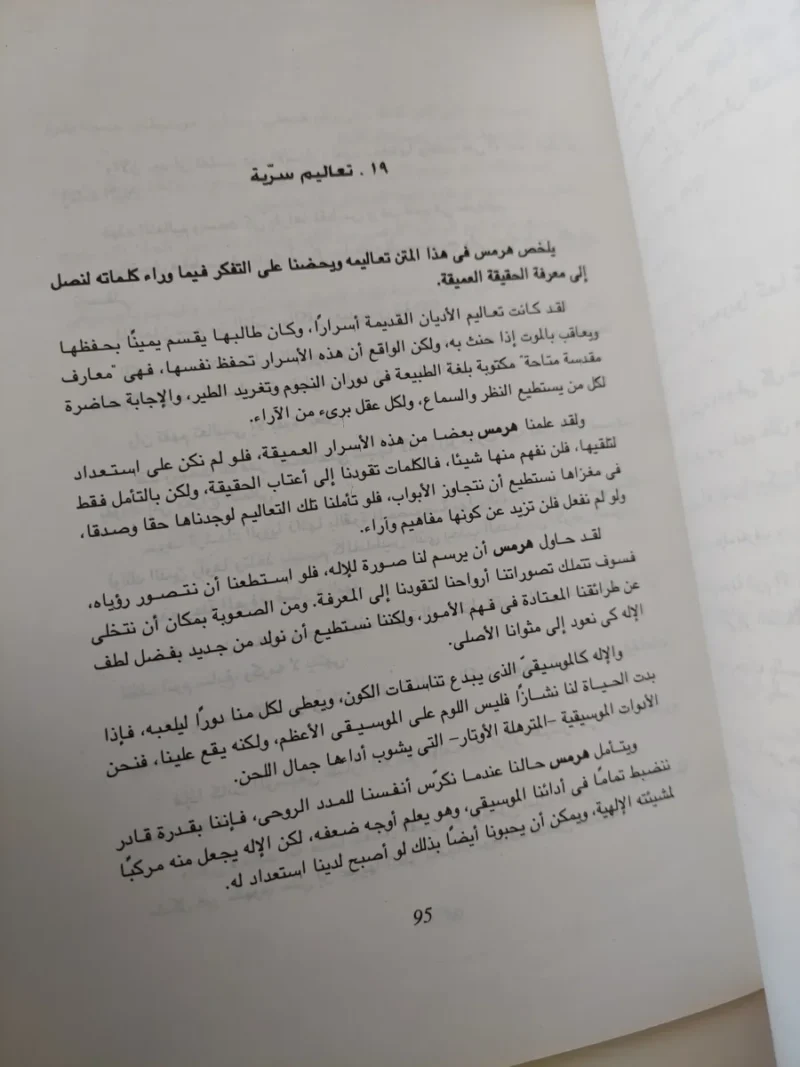 ١٩ . تعاليم سرّية
يلخص هرمس فى هذا المتن تعاليمه ويحضنا على التفكر فيما وراء كلماته لنصل
إلى معرفة الحقيقة العميقة.
لقد كانت تعاليم الأديان القديمة أسرارًا، وكان طالبها يقسم يمينًا بحفظها
ويعاقب بالموت إذا حنث به، ولكن الواقع أن هذه الأسرار تحفظ نفسها، فهى "معارف
مقدسة متاحة" مكتوبة بلغة الطبيعة فى دوران النجوم وتغريد الطير، والإجابة حاضرة
لكل من يستطيع النظر والسماع، ولكل عقل برىء من الآراء.
ولقد علمنا هرمس بعضا من هذه الأسرار العميقة، فلو لم نكن على استعداد
لتلقيها، فلن نفهم منها شيئا، فالكلمات تقودنا إلى أعتاب الحقيقة، ولكن بالتأمل فقط
فى مغزاها نستطيع أن نتجاوز الأبواب، فلو تأملنا تلك التعاليم لوجدناها حقا وصدقا،
ولو لم نفعل فلن تزيد عن كونها مفاهيم وآراء.
لقد حاول هرمس أن يرسم لنا صورة للإله، فلو استطعنا أن نتصور رؤياه،
فسوف تتملك تصوراتنا أرواحنا لتقودنا إلى المعرفة. ومن الصعوبة بمكان أن نتخلى
عن طرائقنا المعتادة فى فهم الأمور، ولكننا نستطيع أن نولد من جديد بفضل لطف
الإله كى نعود إلى مثوانا الأصلى.
والإله كالموسيقىّ الذى يبدع تناسقات الكون، ويعطى لكل منا دورًا ليلعبه، فإذا
بدت الحياة لنا نشازًا فليس اللوم على الموسيقى الأعظم، ولكنه يقع علينا، فنحن
الأدوات الموسيقية -المترهلة الأوتار- التى يشوب أداءها جمال اللحن.
ويتأمل هرمس حالنا عندما نكرّس أنفسنا للمدد الروحى، فإننا بقدرة قادر
ننضبط تمامًا فى أدائنا الموسيقى، وهو يعلم أوجه ضعفه، لكن الإله يجعل منه مركبًا
لمشيئته الإلهية، ويمكن أن يحبونا أيضًا بذلك لو أصبح لدينا استعداد له.
95